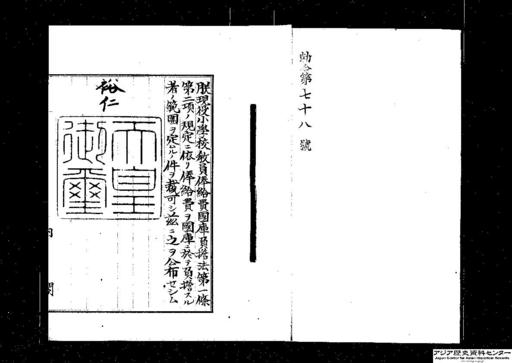 勅令第七十八號
朕現役小學校教員俸給費國庫負擔法第一條
第二項ノ規定ニ依リ俸給費ヲ國庫ニ於テ負擔スル
者ノ範圍ヲ定ムルノ件ヲ裁可シ玆ニ之ヲ公布セシム
裕仁
天皇
御璽
内閣
アジア歴史資料センター
Japan Center for Asian Historical Records